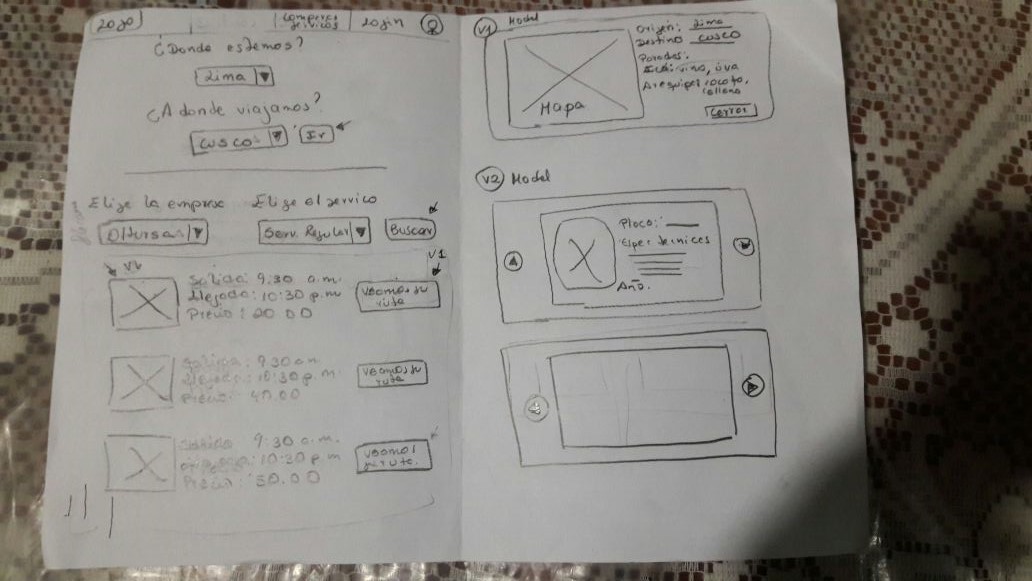 Logo
Compres servicos
Login
¿Donde estemos?
Lima
¿A donde viajamos?
Cusco
Ir
Elige la empresa
Elige el servico
Oltursa
Serv. Regular
Buscar
V1
Salida: 9:30 a.m.
llegada: 10:30 p.m
Precio: 20 00
Veamos su ruta
Salida: 9:30 am.
llegada: 10:30 p.m.
Precio: 40.00
Veamos su ruta
Salida 9:30 a.m.
10:30 p m
Precio: 50.00
Veamos
V1 Model
Mapa
Origen: Lima
Destino Cusco
Parades:
vino, uva
Arequipa: rocoto,
Cerrar
V2 Model
Placa:
Espec tecnices
Año.